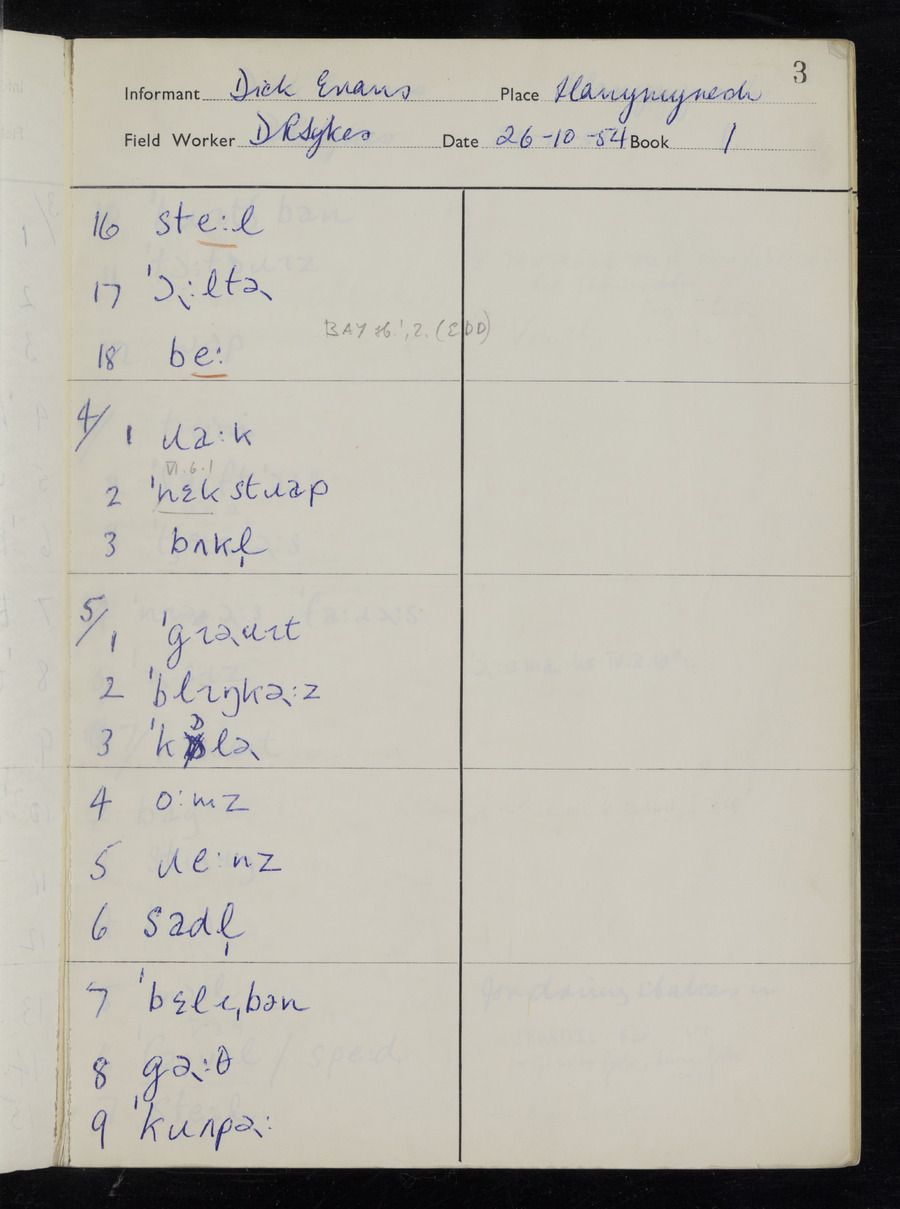 3
Informant Dick Evans Place Llanymynech
Field Worker D R Sykes Date 26-10-54 Book 1
16 ste:l
17 'ɔ˞:ltə˞
BAY sb.¹, 2. (EDD)
18 be:
4/ 1 ɹa:k
VI.6.1
2 'nɛkstɹap
3 bʌkl̩
5/ 1 'gɪə˞ɹɪt
2 'blɪŋkə˞:z
3 'kɒlə˞
4 o:mz
5 ɹe:nz
6 sadl̩
7 'bɛlɪˌban
8 gə˞:θ
9 'kɹʌpə˞: